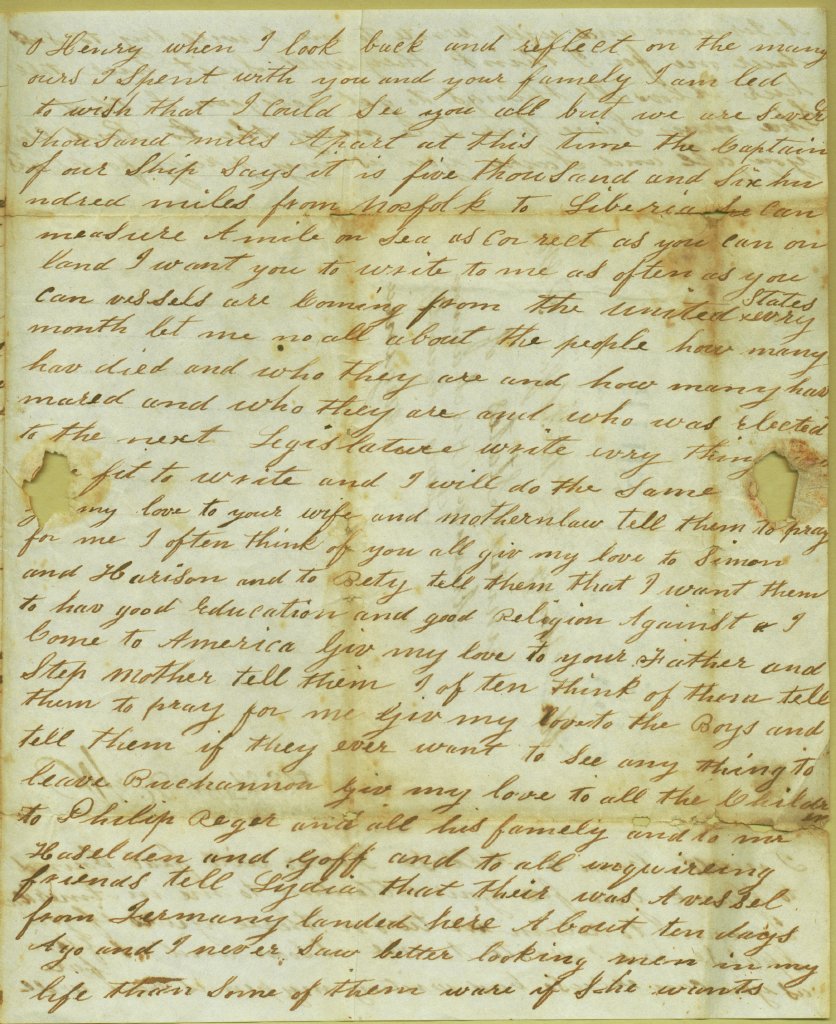 O Henry when I look back and reflect on the many
ours I Spent with you and your famely I am led
to wish that I Could See you all but we are Sever
Thousand miles Apart at this time the Captain
of our Ship Says it is five thousand and Six hu
ndred miles from Norfolk to Liberia he Can
measure A mile on Sea as Correct as you can on
land I want you to write to me as often as you
Can vessels are Coming from the united States evry
month let me no all about the people how many
hav died and who they are and how many hav
mared and who they are and who was elected
to the next Legislature write evry thing
fit to write and I will do the Same
my love to your wife and mothernlaw tell them to pray
for me I often think of you all giv my love to Simon
and Harison and to Bety tell them that I want them
to hav good Education and good Religion Against I
Come to America Giv my love to your Father and
Step mother tell them I of ten think of them tell
them to pray for me Giv my love to the Boys and
tell them if they ever want to See any thing to
leave Buchannon giv my love to all the Children
to Philip Reger and all his famely and to mr
Haselden and Goff and to all inquireing
friends tell Lydia that their was A vessel
from Germany landed here About ten days
Ago and I never Saw better looking men in my
life than Some of them ware if She wants